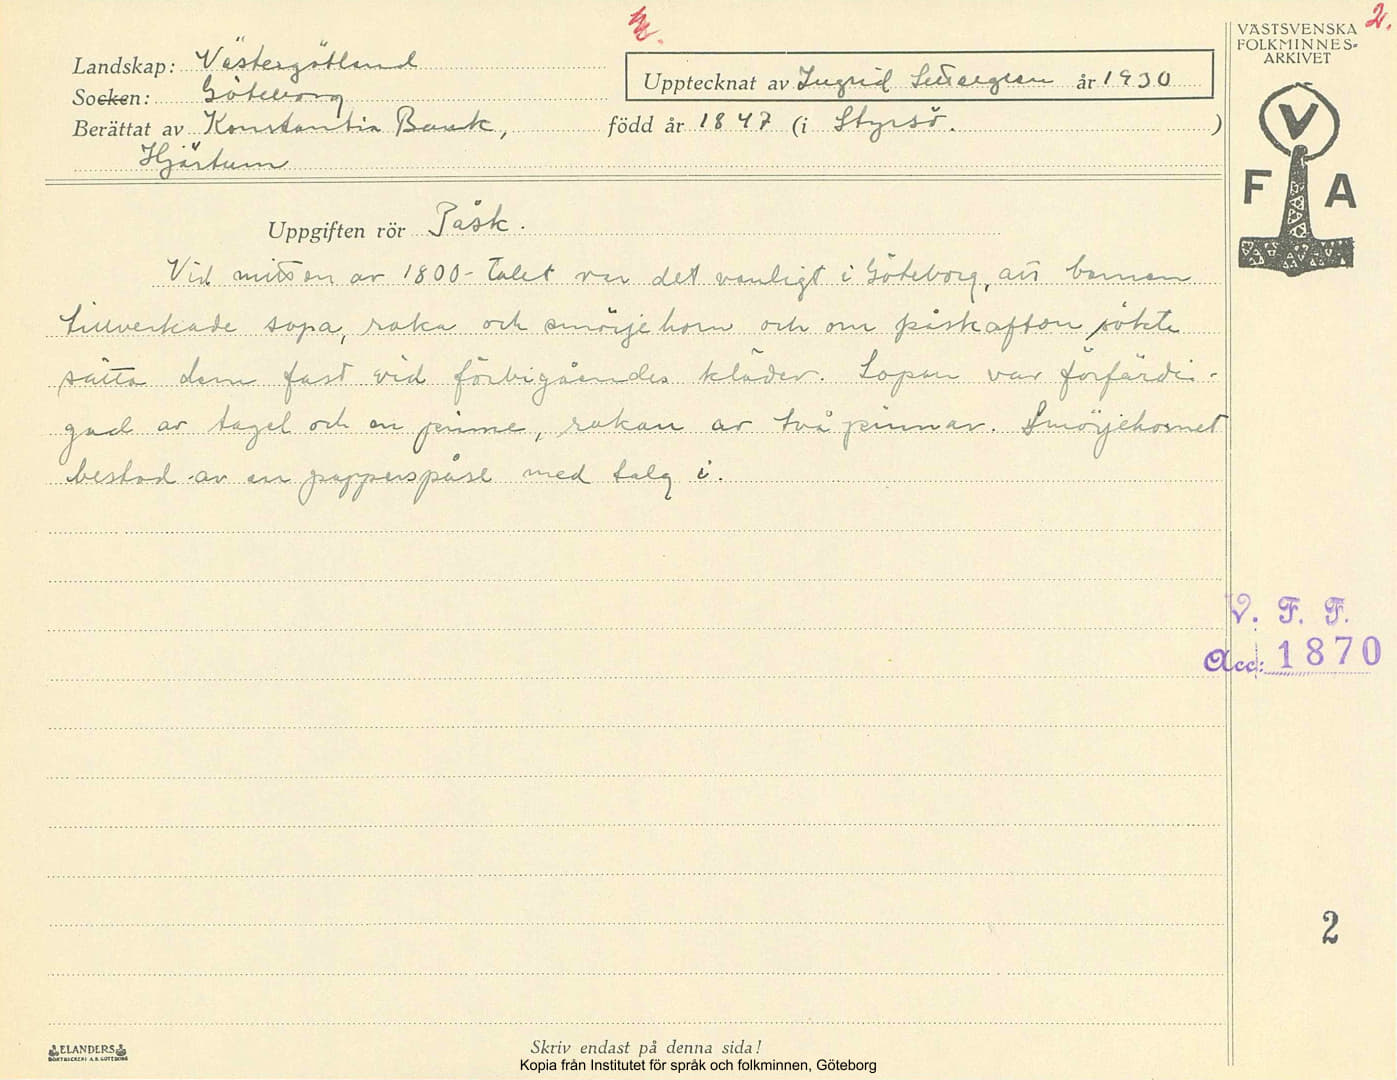 2.
VÄSTSVENSKA
FOLKMINNES-
ARKIVET
V
F A
Landskap: Västergötland
Socken: Göteborg
Upptecknat av Ingrid år 1930
Berättat av Konstantia Bank, född år 1847 (i Styrsö. )
Hjärtum
Uppgiften rör Påsk.
Vid mitten av 1800-talet var det vanligt i Göteborg, att barnen
tillverkade sopa, raka och smörjehorn och om påskafton sökte
sätta dem fast vid förbigåendes kläder. Sopan var förfärdi-
gad av tagel och en pinne, rakan av två pinnar. Smörjehornet
bestod av en papperspåse med talg i.
V. F. F.
Acc: 1870
2
ELANDERS
BOKTRYCKERI A.B. GÖTEBORG
Skriv endast på denna sida!
Kopia från Institutet för språk och folkminnen, Göteborg